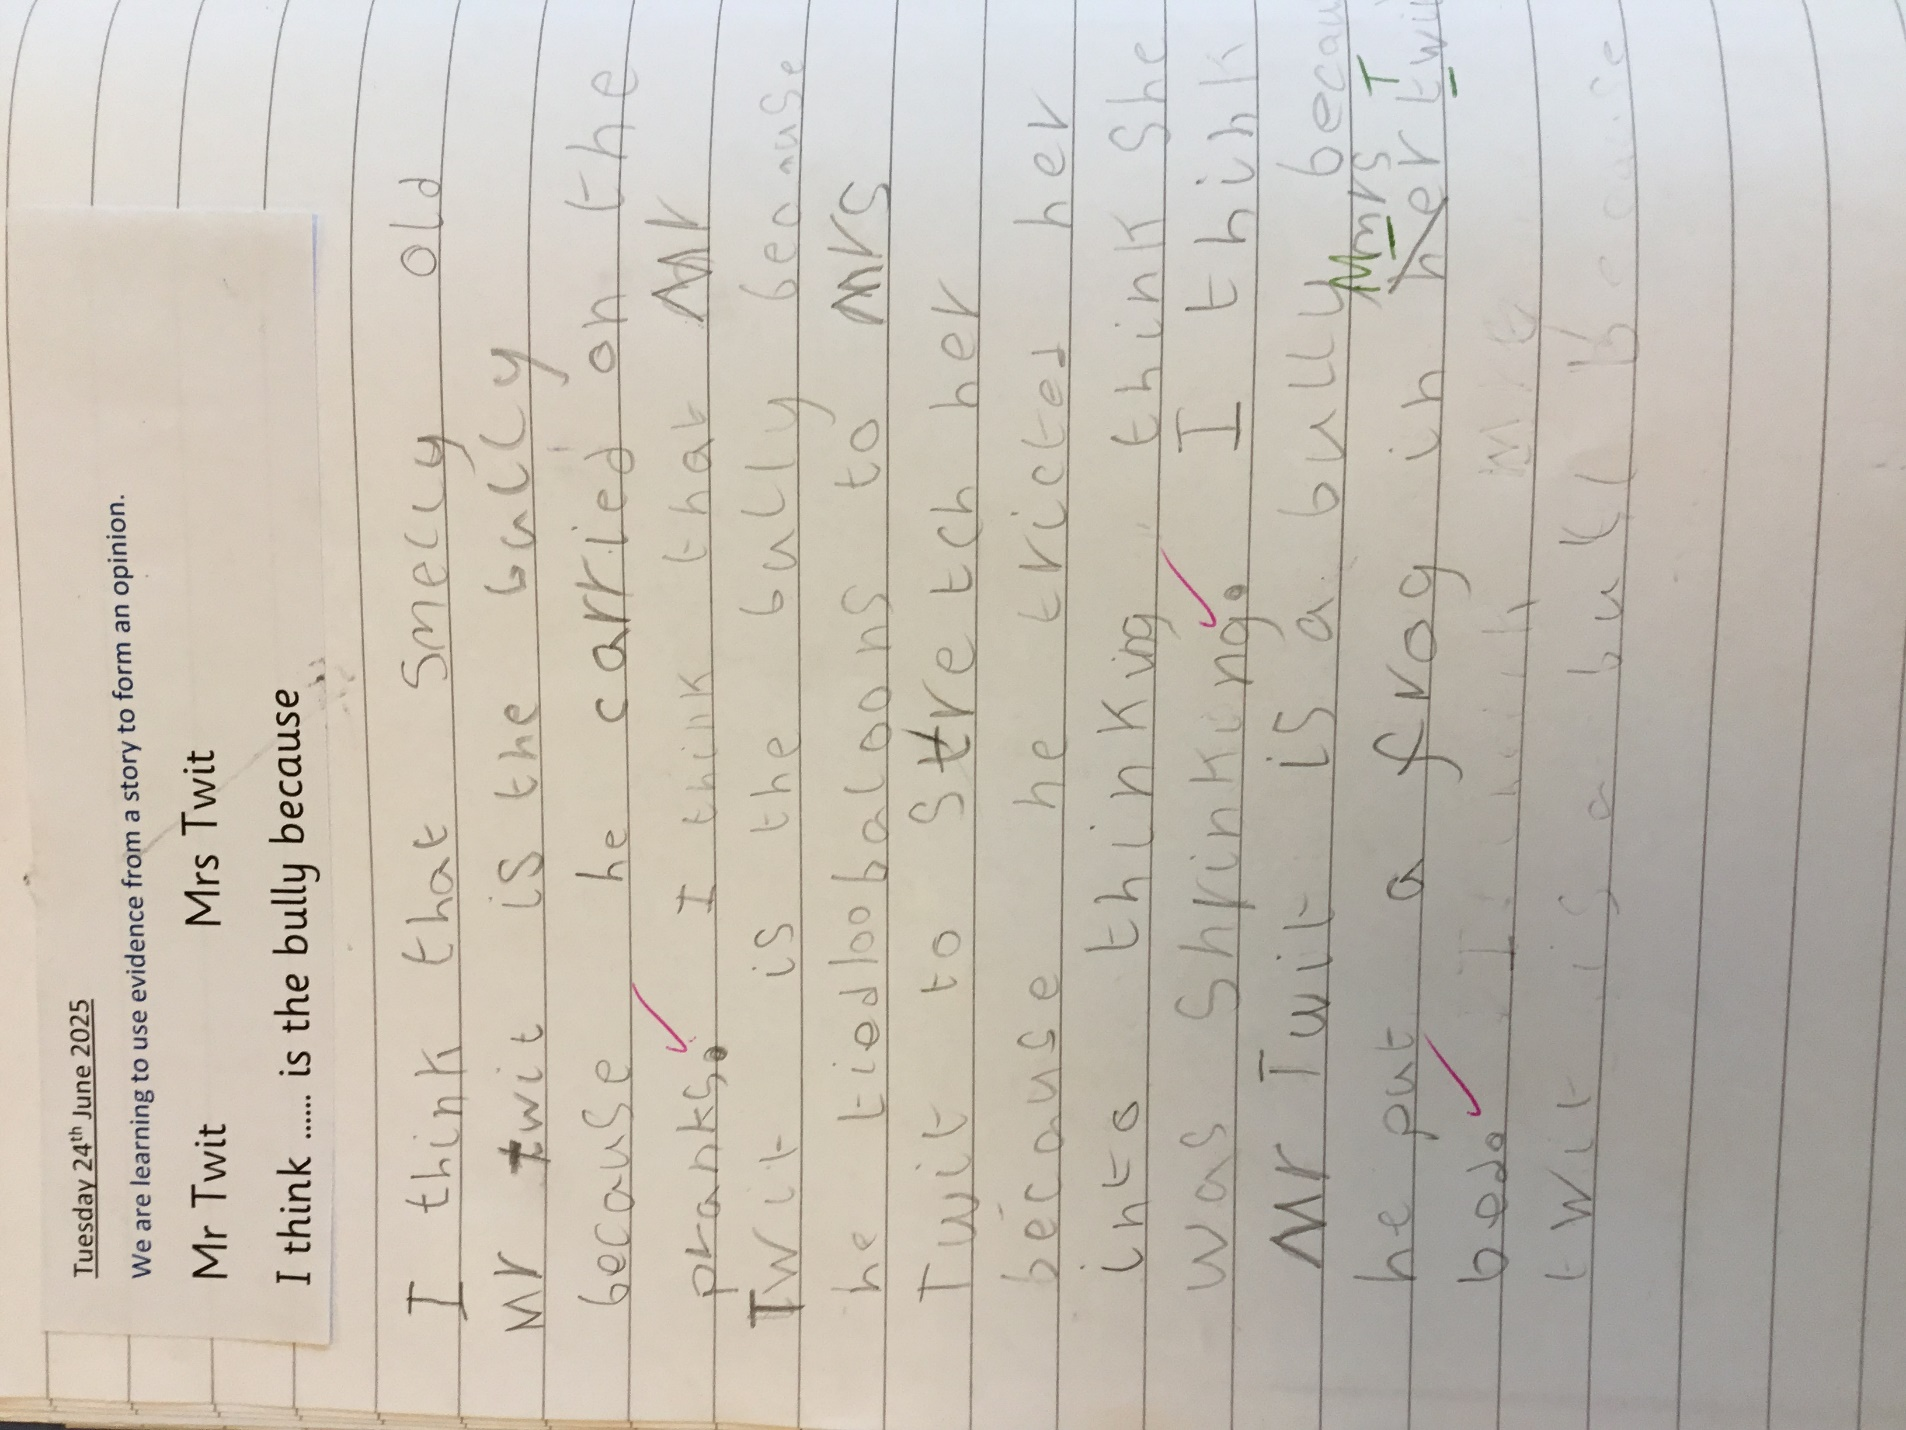 Tuesday 24th June 2025
We are learning to use evidence from a story to form an opinion.
Mr Twit Mrs Twit
I think ...... is the bully because
I think that smelly old
Mr twit is the bully
because he carried on the
pranks. I think that Mr
Twit is the bully because
he tied 100 baloons to Mrs
Twit to stretch her
because he tricted her
into thinking think she
was shrinking. I think
Mr Twit is a bully becau
Mmrs T
he put a frog in her twi
bed. I think Mr
twit is a bull Because